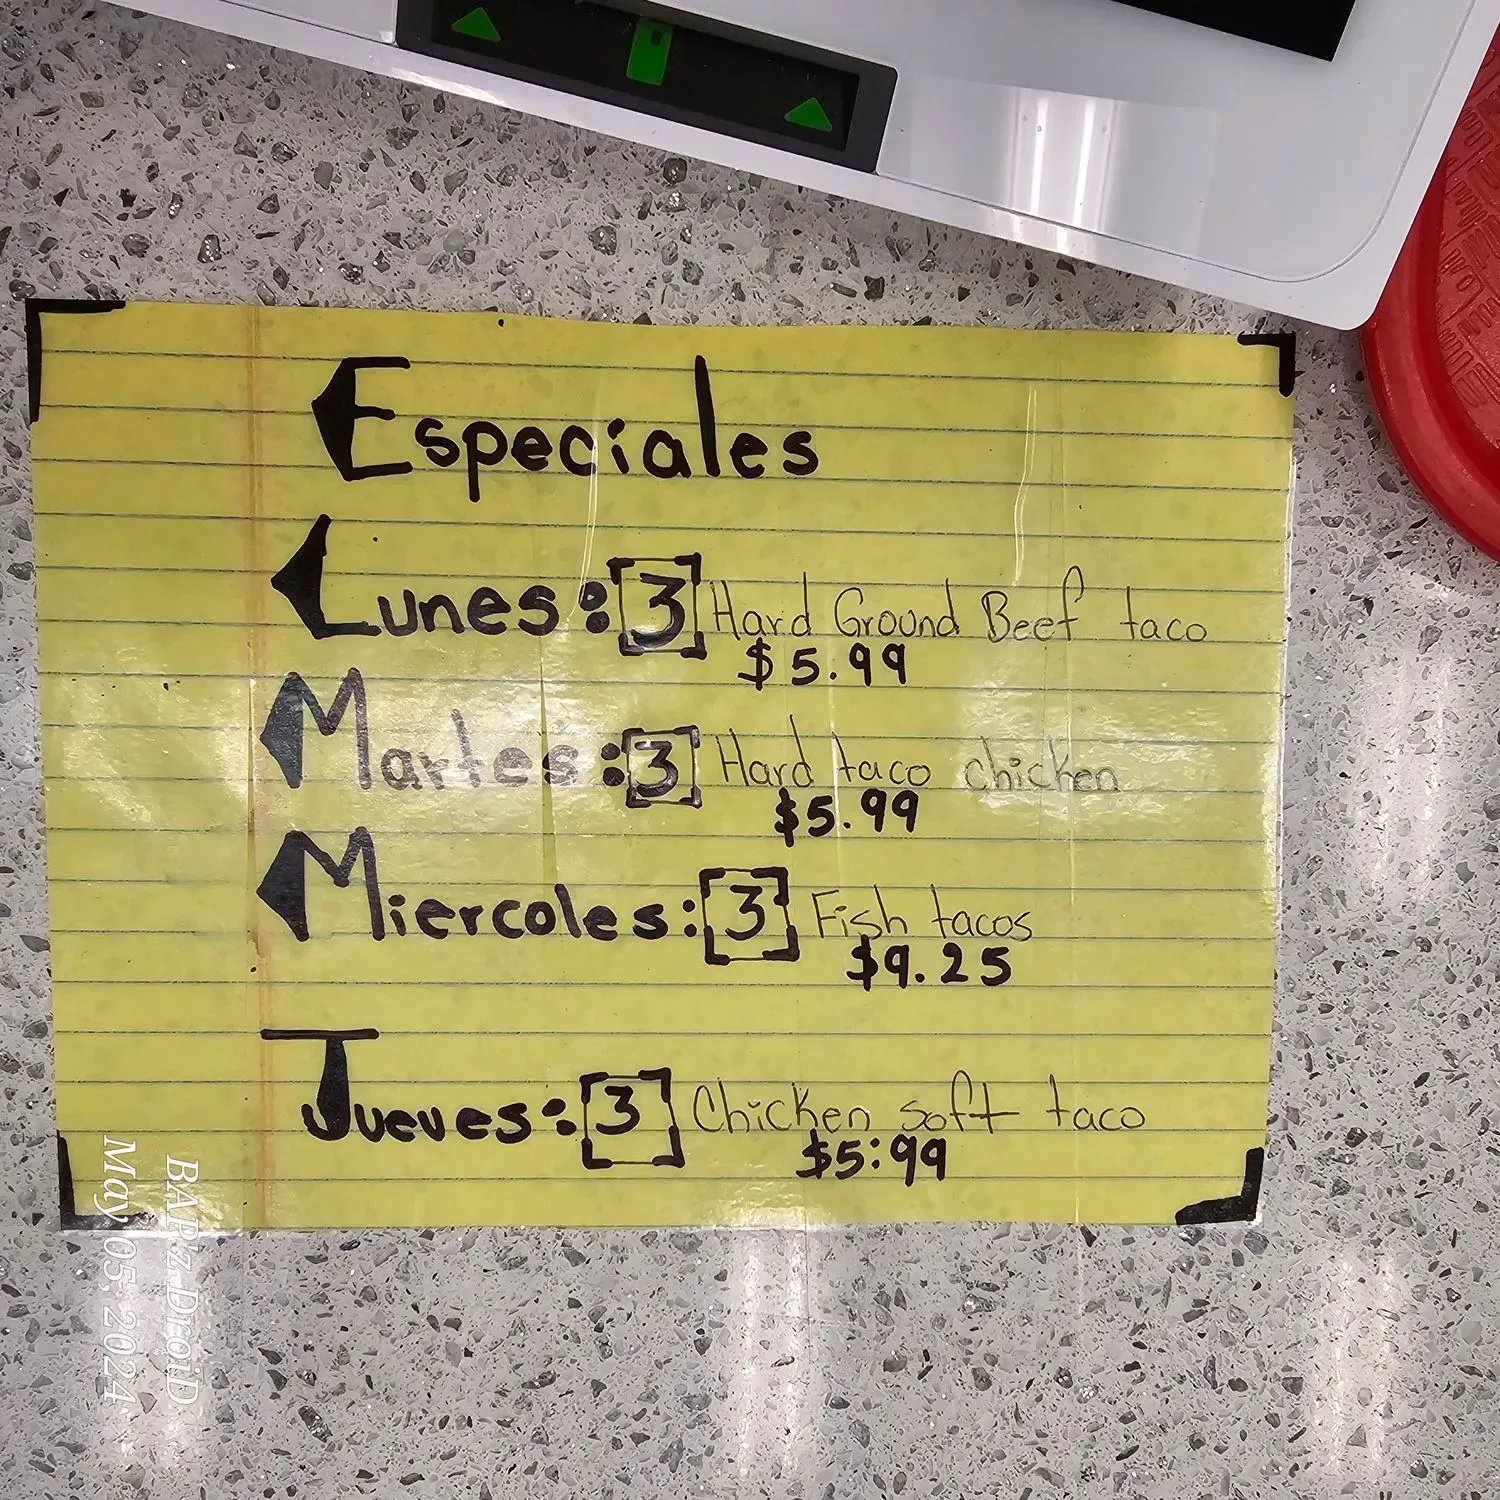 Especiales
Lunes: 3 Hard Ground Beef taco
$5.99
Martes: 3 Hard taco chicken
$5.99
Miercoles: 3 Fish tacos
$9.25
Jueves: 3 Chicken soft taco
$5:99
BAPz DroiD
May 05, 2024